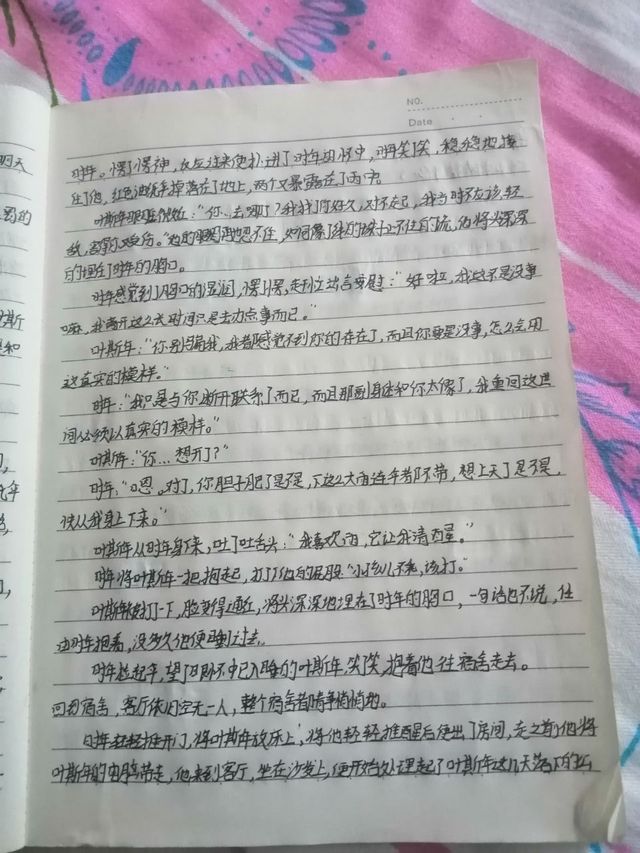 NO.
Date
时年。愣了愣神，反应过来便扑进了时年的怀中，时年笑了笑，稳稳地接
住了他，红色油纸伞掉落在了地上，两个又暴露在了雨中。
叶斯年眼眶微红："你…去哪了？我找了你好久，对不起，我当时不应该轻
的埋在了时年的胸口。
时年感觉到了胸口的湿润，愣了愣，走刊立站言安慰："好啦，我这不是没事
嘛，我离开这么长时间只是去办点事而已。"
叶斯年："你别骗我，我都感觉不到你的存在了，而且你要是没事，怎么会用
这真实的模样。"
时年："我只是与你断开联系了而已，而且那副身体和你太像了，我重回这进
间必须以真实的模样。"
叶斯年："你…想开了？"
时年："嗯。对了，你胆子肥了是不是，下这么大雨连伞都不带，想上天了是不是，
快从我身上下来。"
叶斯年从时年身下来，吐了吐舌头："我喜欢雨，它让我清醒。"
时年将叶斯年一把抱起，打了他的屁股"小孩儿不乖，该打。"
叶斯年被打一下，脸变得通红，将头深深地埋在了时年的胸口，一句话也不说，任
由时年抱着，没多久他便睡过去。
时年捡起伞，望了回眼怀中已入睡的叶斯年，笑了笑，抱着他往宿舍走去。
回到宿舍，客厅依旧空无一人，整个宿舍都静悄悄地。
时年轻轻推开门，将叶斯年放床上，将他轻轻推醒后便出了房间，走之前他将
叶斯年的电脑带走，他来到客厅，坐在沙发上，便开始处理起了叶斯年这几天落下的公